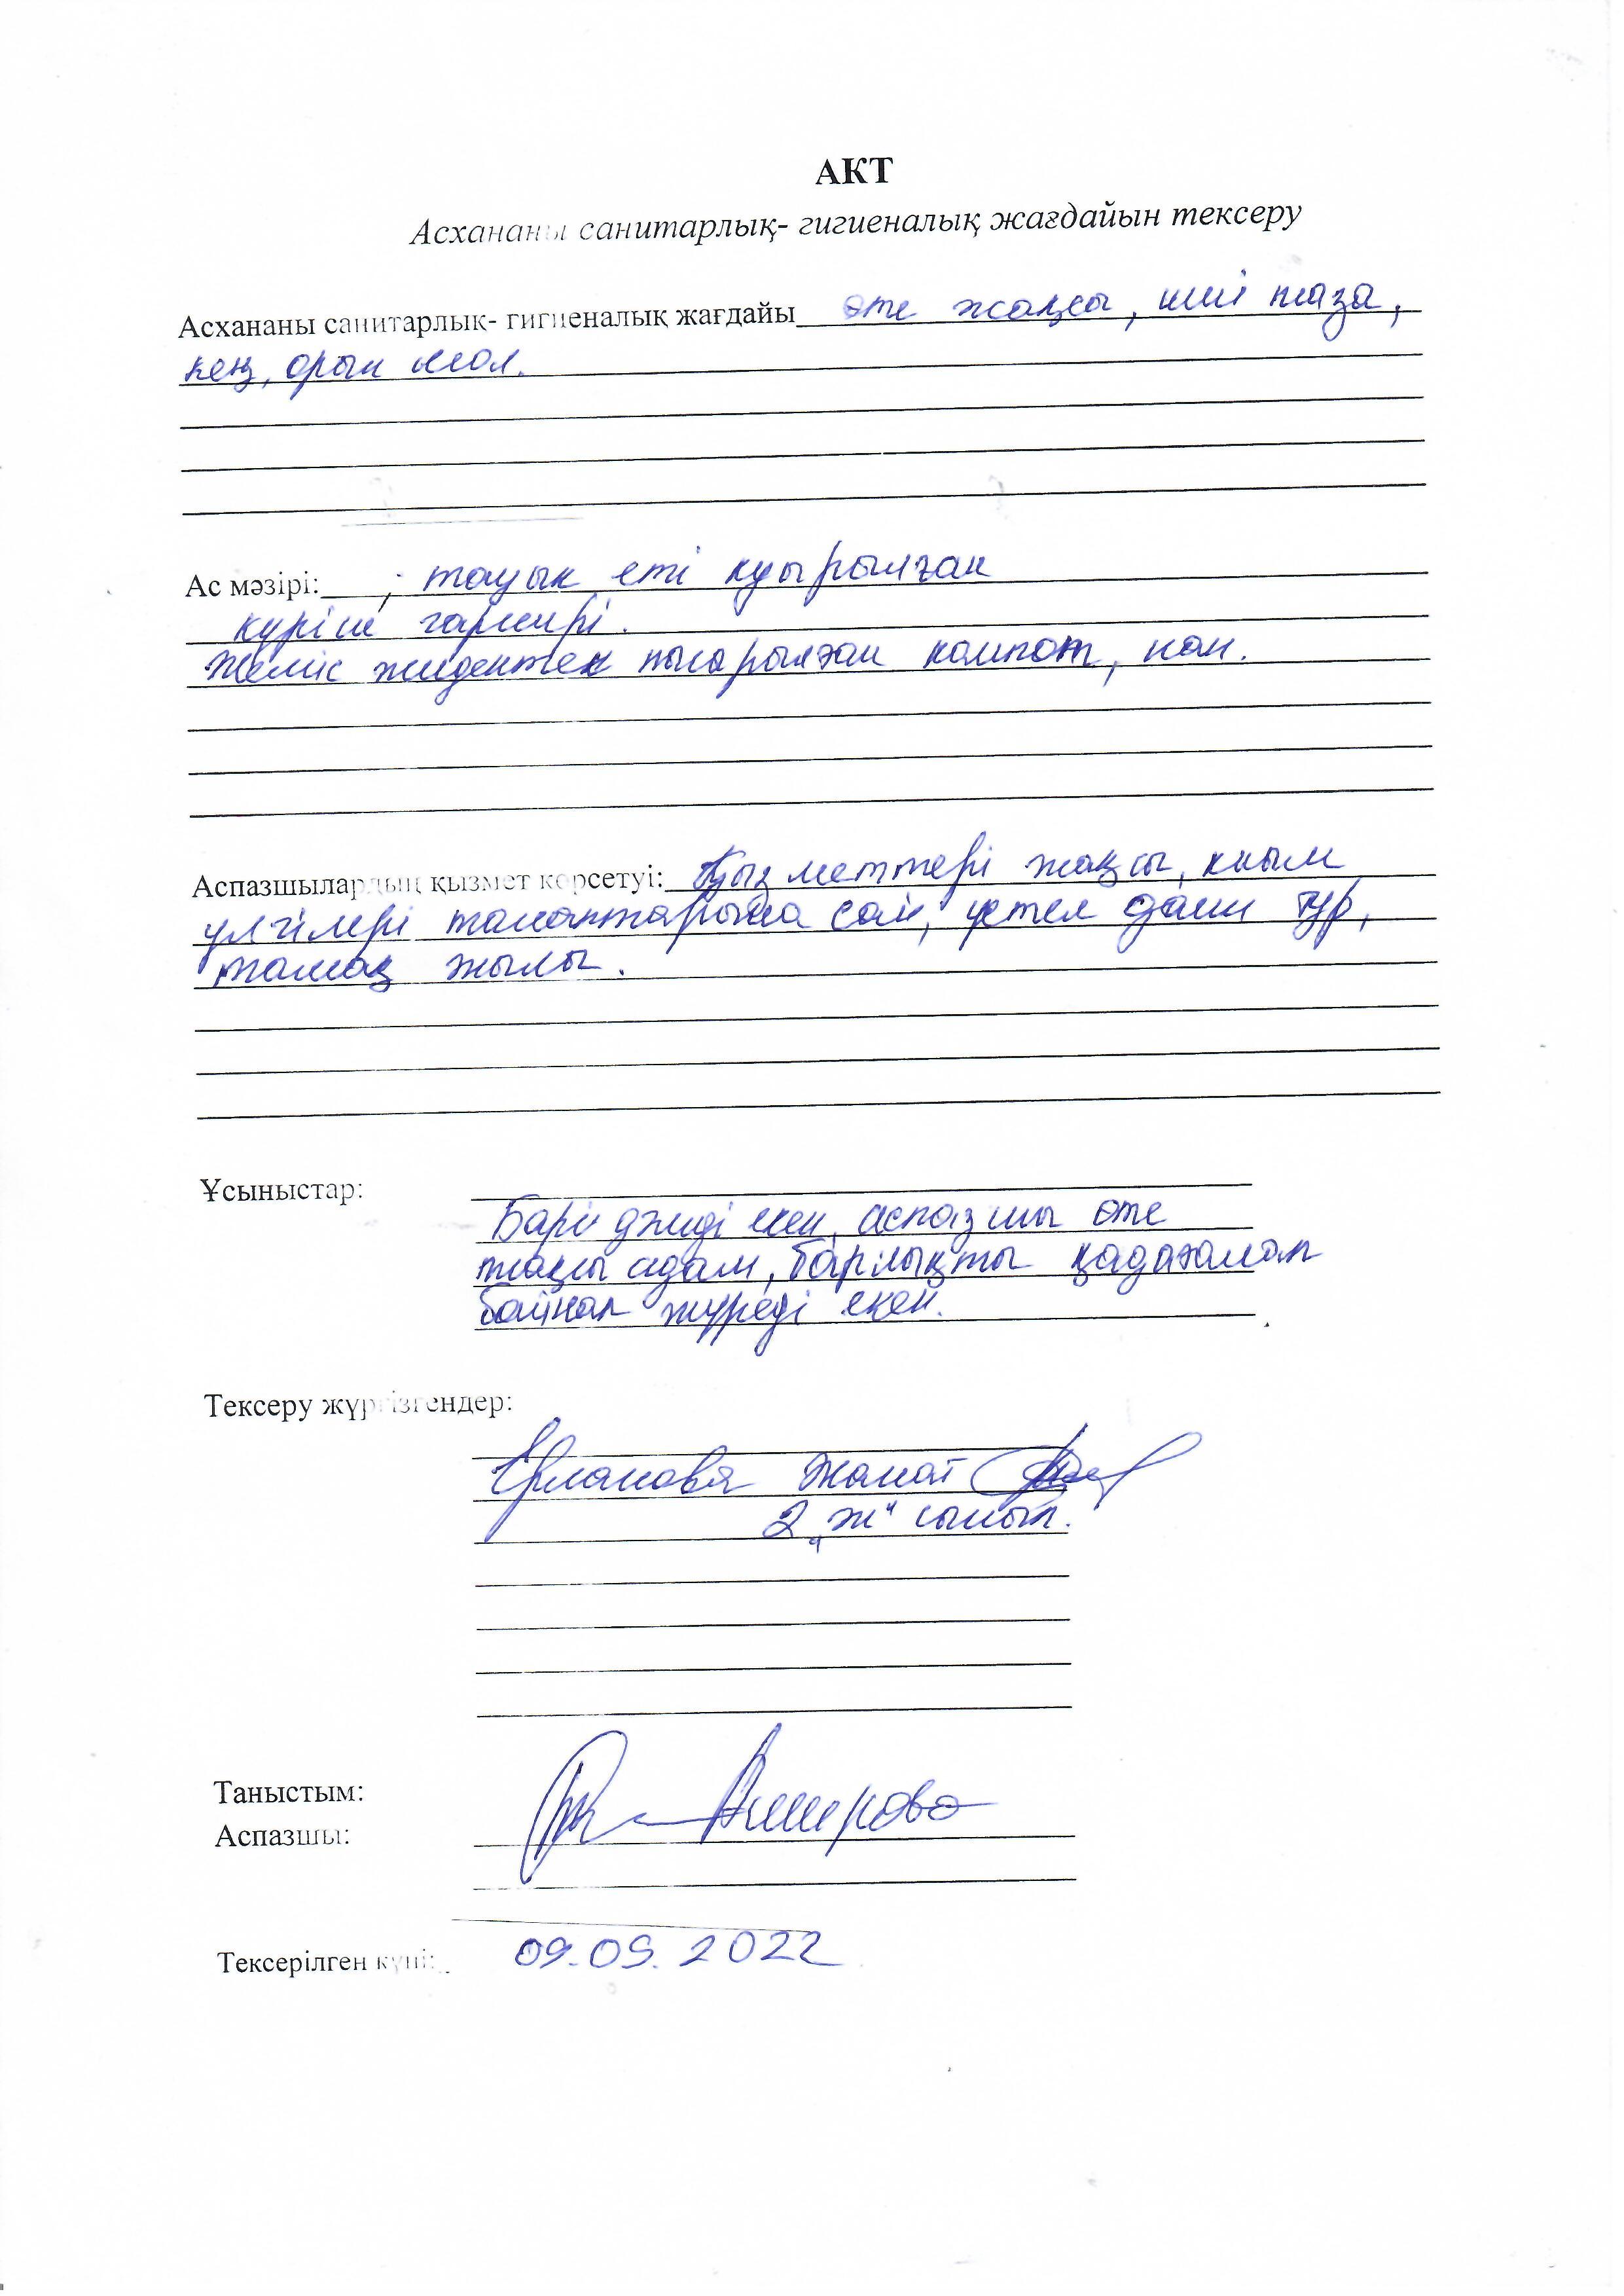 АКТ
Асхананы санитарлық- гигиеналық жағдайын тексеру
Асхананы санитарлық- гигиеналық жағдайы өте жақсы, іші таза,
кең, орын мол.
Ас мәзірі: , тауық еті қуырылған
күріш гарнирі.
Жеміс жидектен пысарылған компот, нан.
Аспазшылардың қызмет көрсетуі: Қызметтері жақсы, киым
үлгілері талаптарына сай, үстел дайн тұр,
тамақ жылы.
Ұсыныстар:
Бәрі дұиді екен, аспазшы өте
жақсы адам, барлықты қадағалап
байқап жүреді екен.
Тексеру жүргізгендер:
Ерланова Жанат
2 „Ж" сынып.
Таныстым:
Аспазшы: Аширова
Тексерілген күні: 09.09.2022